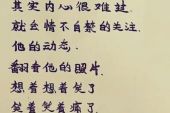 其实内心很难过.
就么情不自禁的关注.
他的动态.
翻看他的照片.
想着想着笑了
笑着笑着痛了.